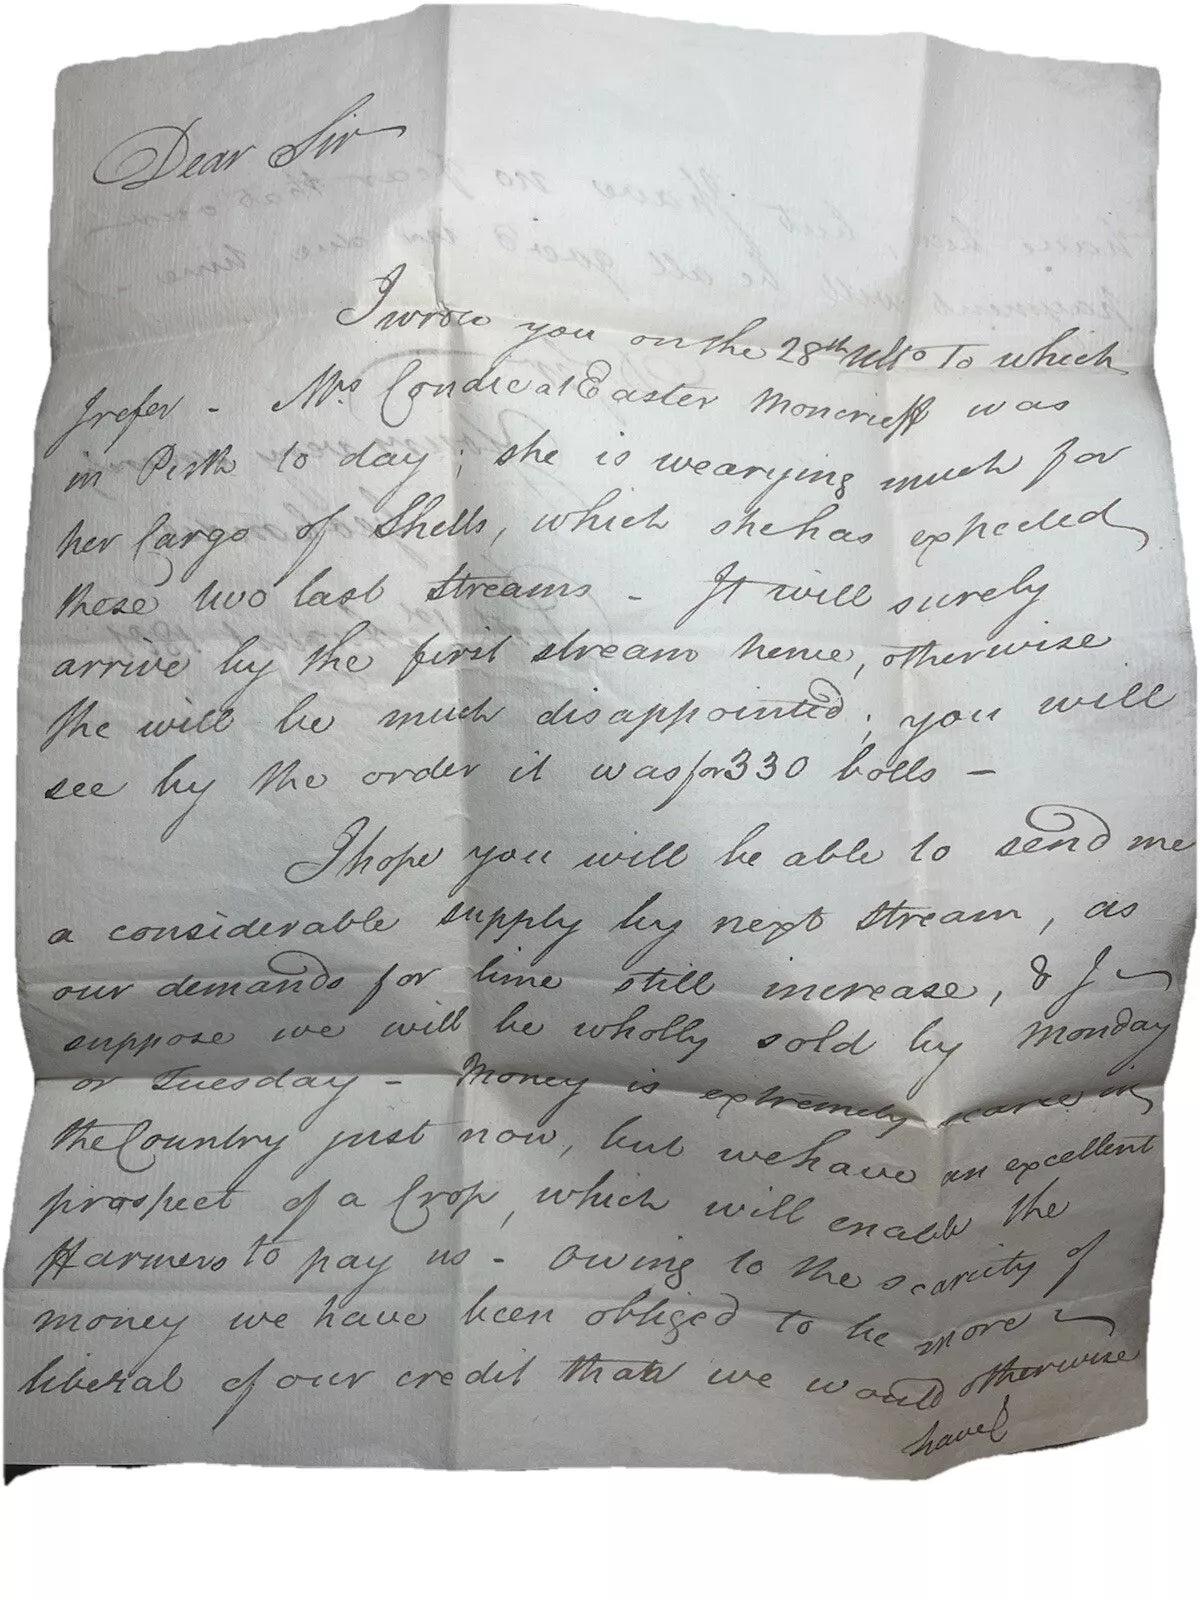 Dear Sir
I wrote you on the 28th Ulto to which
I refer - Mrs Condie at Easter Moncrieff was
in Perth to day; she is wearying much for
her Cargo of Shells, which she has expected
these two last streams - It will surely
arrive by the first stream hence, otherwise
she will be much disappointed; you will
see by the order it was for 330 bolls -
I hope you will be able to send me
a considerable supply by next stream, as
our demands for lime still increase, & I
suppose we will be wholly sold by Monday
or Tuesday - Money is extremely scarce in
the Country just now, but we have an excellent
prospect of a Crop, which will enable the
Farmers to pay us - Owing to the scarcity of
money we have been obliged to be more
liberal of our credit than we would otherwise
have
have been, but I have no fear that our
payments will be all good in due time -